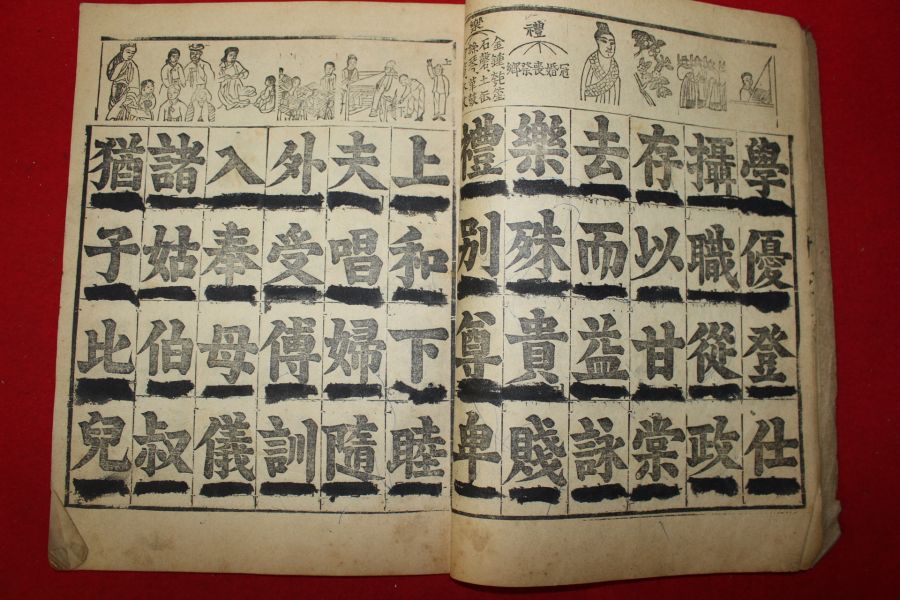 禮
冠婚喪祭鄉
樂
金鍾匏笙
石磬土缶
絲琴革鼓
學優登仕
攝職從政
存以甘棠
去而益詠
樂殊貴賤
禮別尊卑
上和下睦
夫唱婦隨
外受傅訓
入奉母儀
諸姑伯叔
猶子比兒